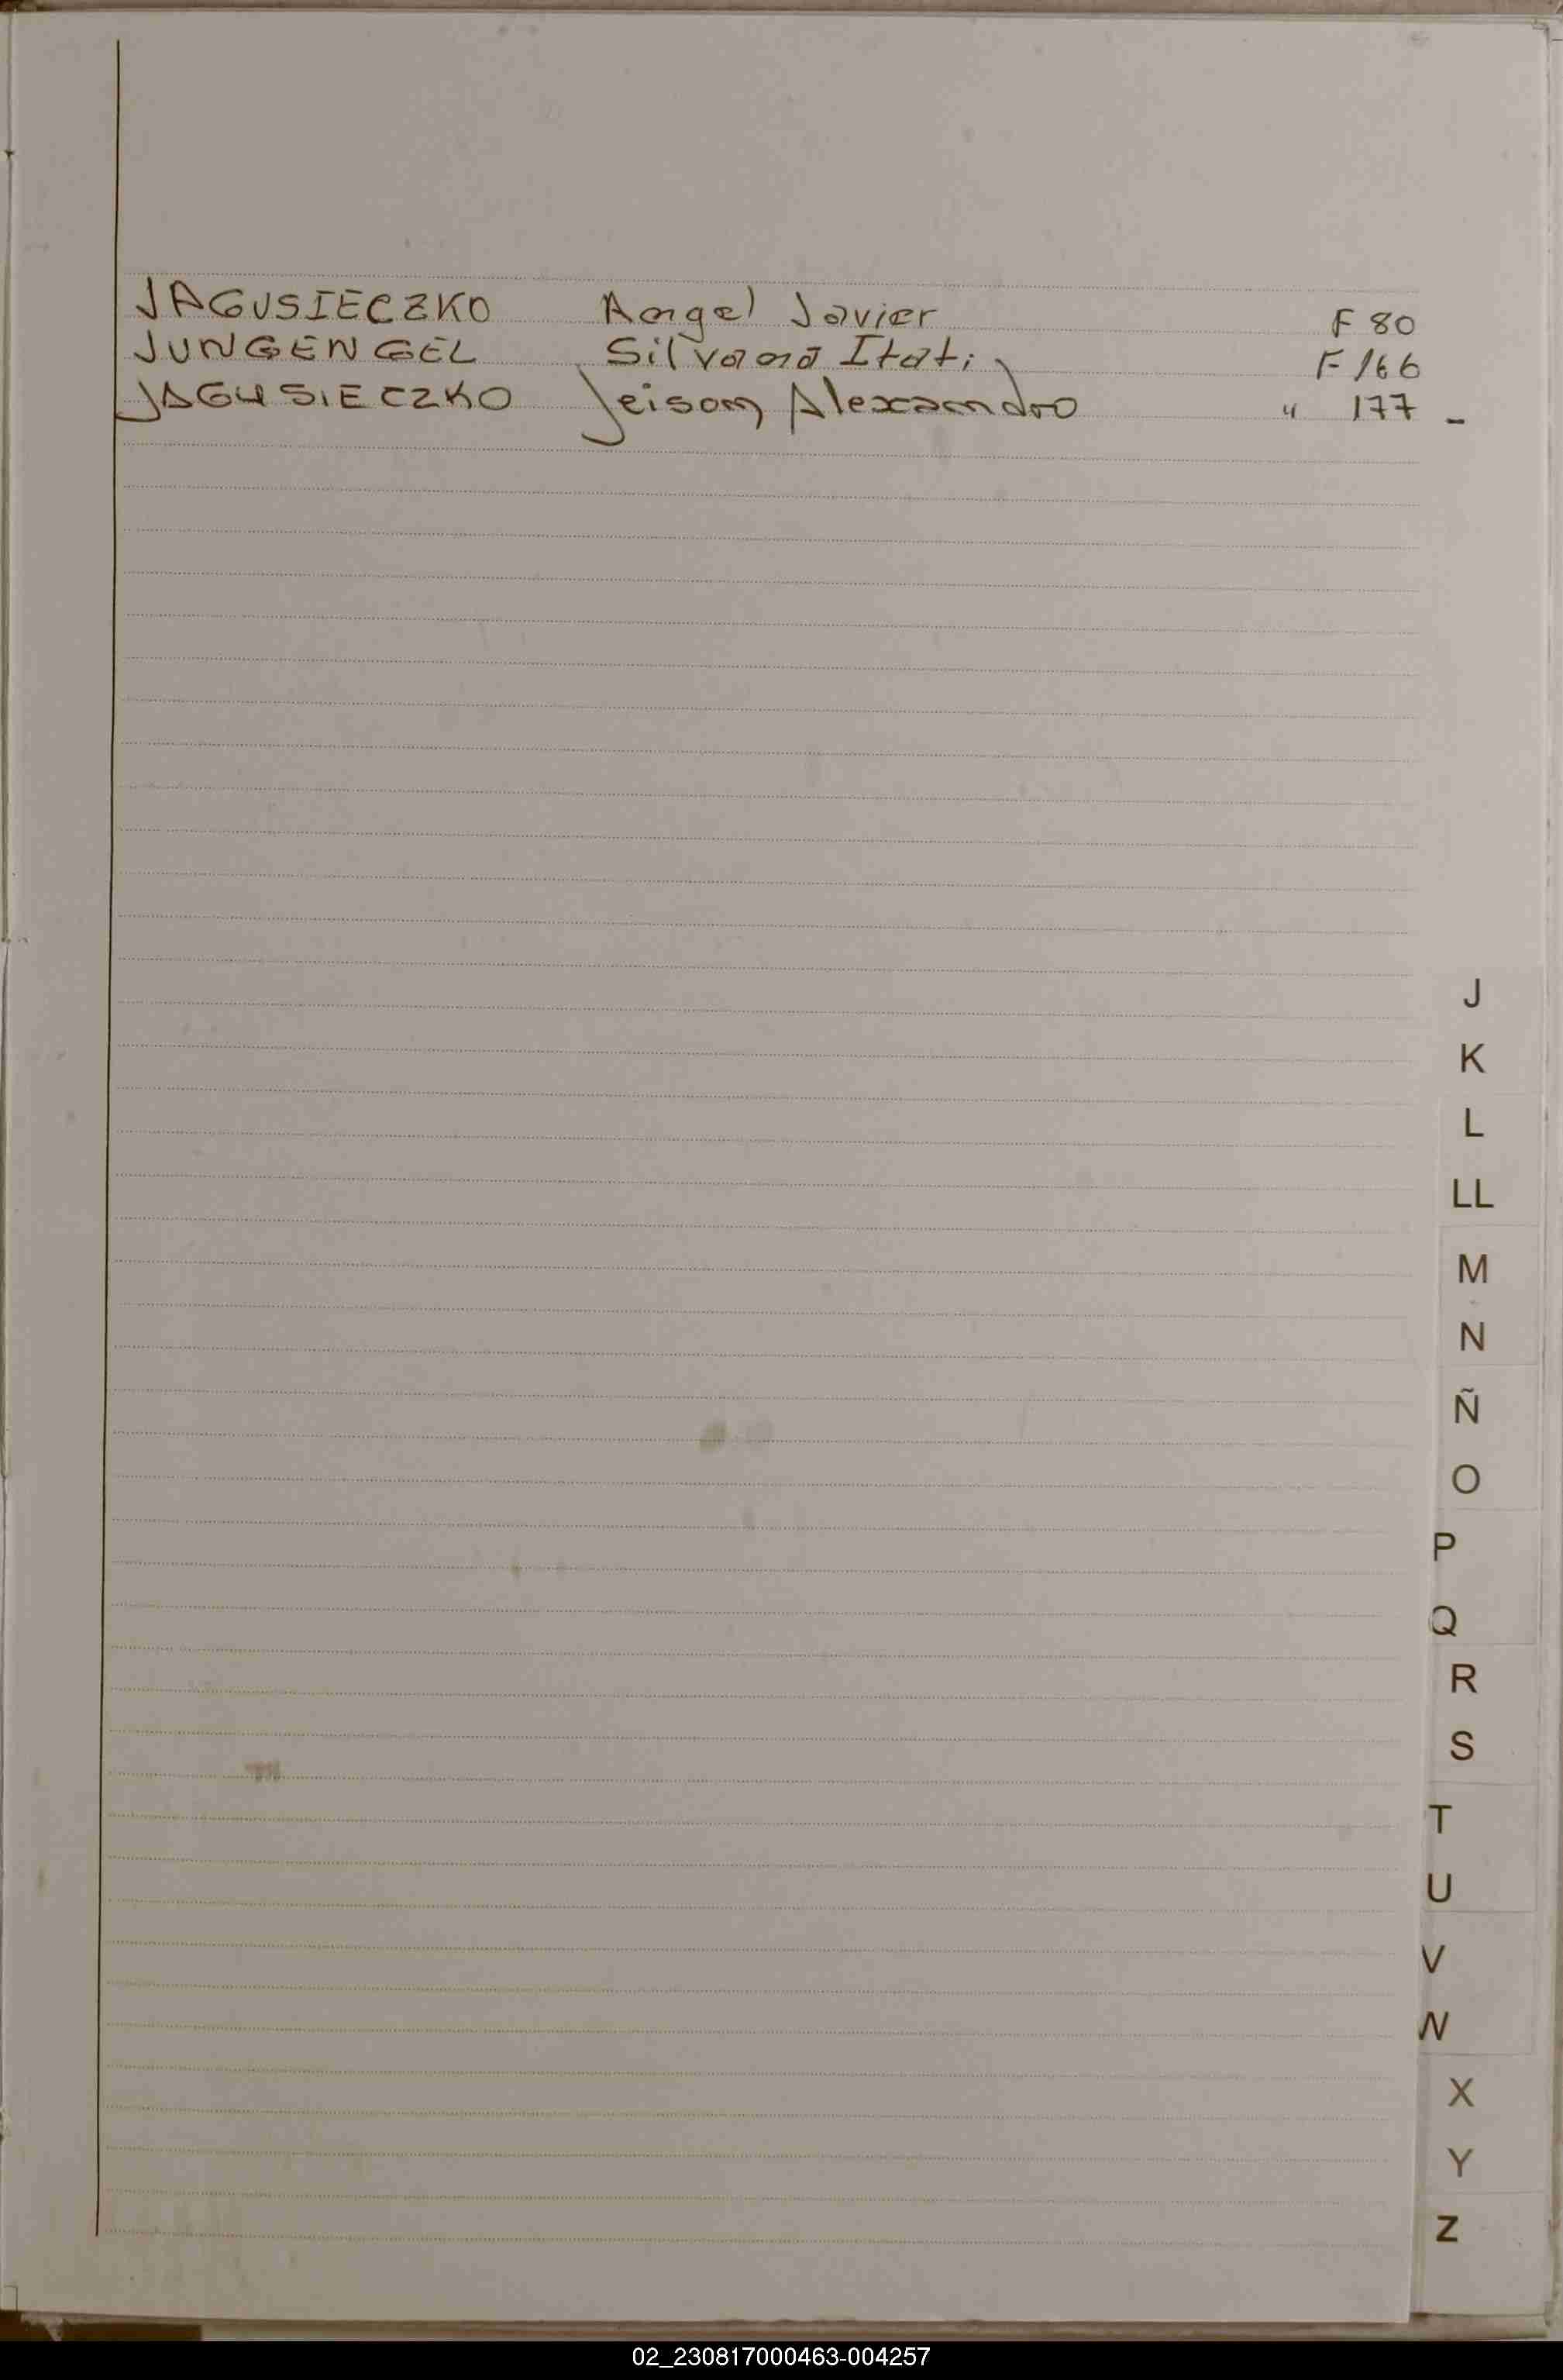 JAGUSIECZKO Angel Javier F 80
JUNGENGEL Silvana Itati F 166
JAGUSIECZKO Jeison Alexandro " 177 -
J
K
L
LL
M
N
Ñ
O
P
Q
R
S
T
U
V
W
X
Y
Z
02_230817000463-004257